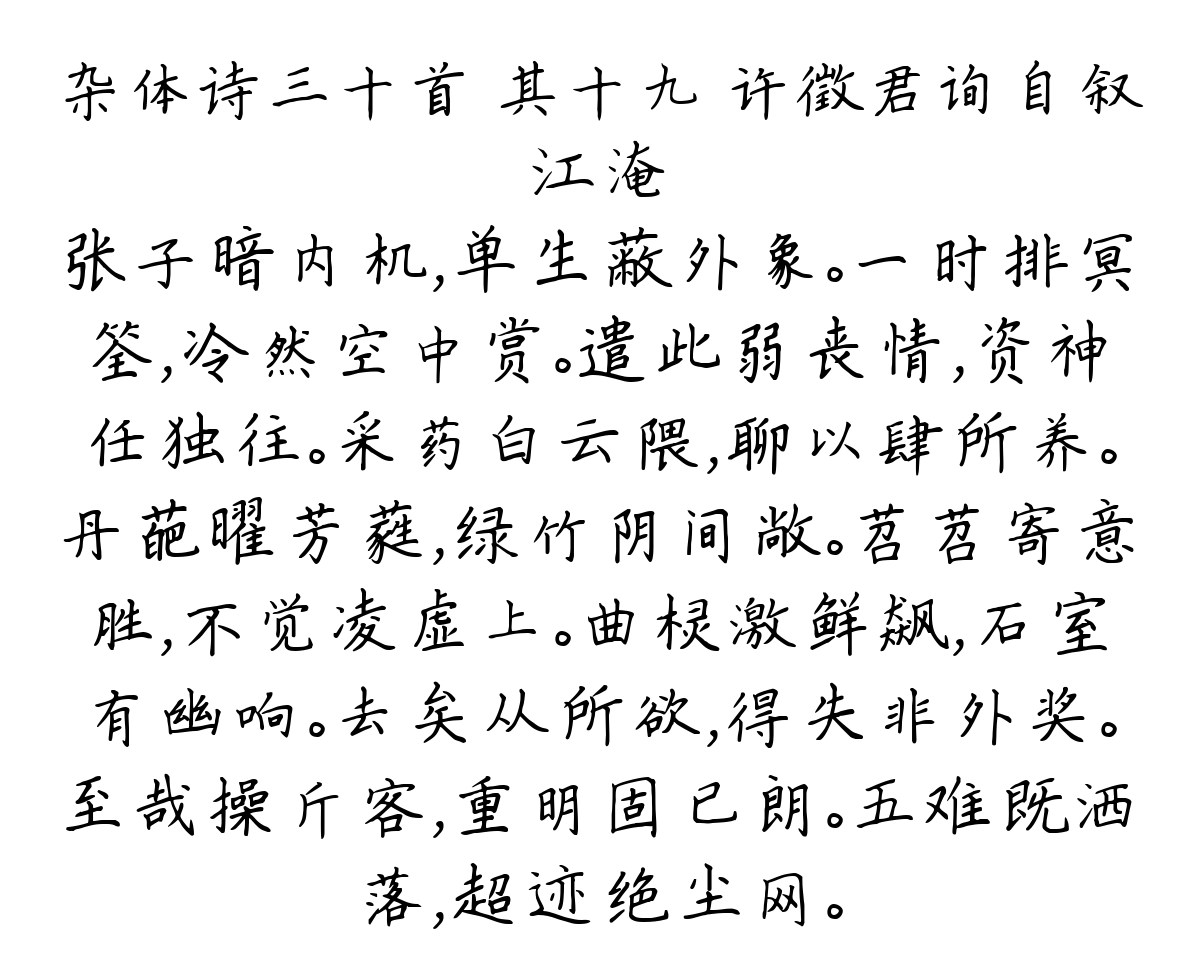 杂体诗三十首 其十九 许徵君询自叙
江淹
张子暗内机,单生蔽外象。一时排冥
筌,冷然空中赏。遣此弱丧情,资神
任独往。采药白云隈,聊以肆所养。
丹葩曜芳蕤,绿竹阴间敞。苕苕寄意
胜,不觉凌虚上。曲棂激鲜飙,石室
有幽响。去矣从所欲,得失非外奖。
至哉操斤客,重明固已朗。五难既洒
落,超迹绝尘网。